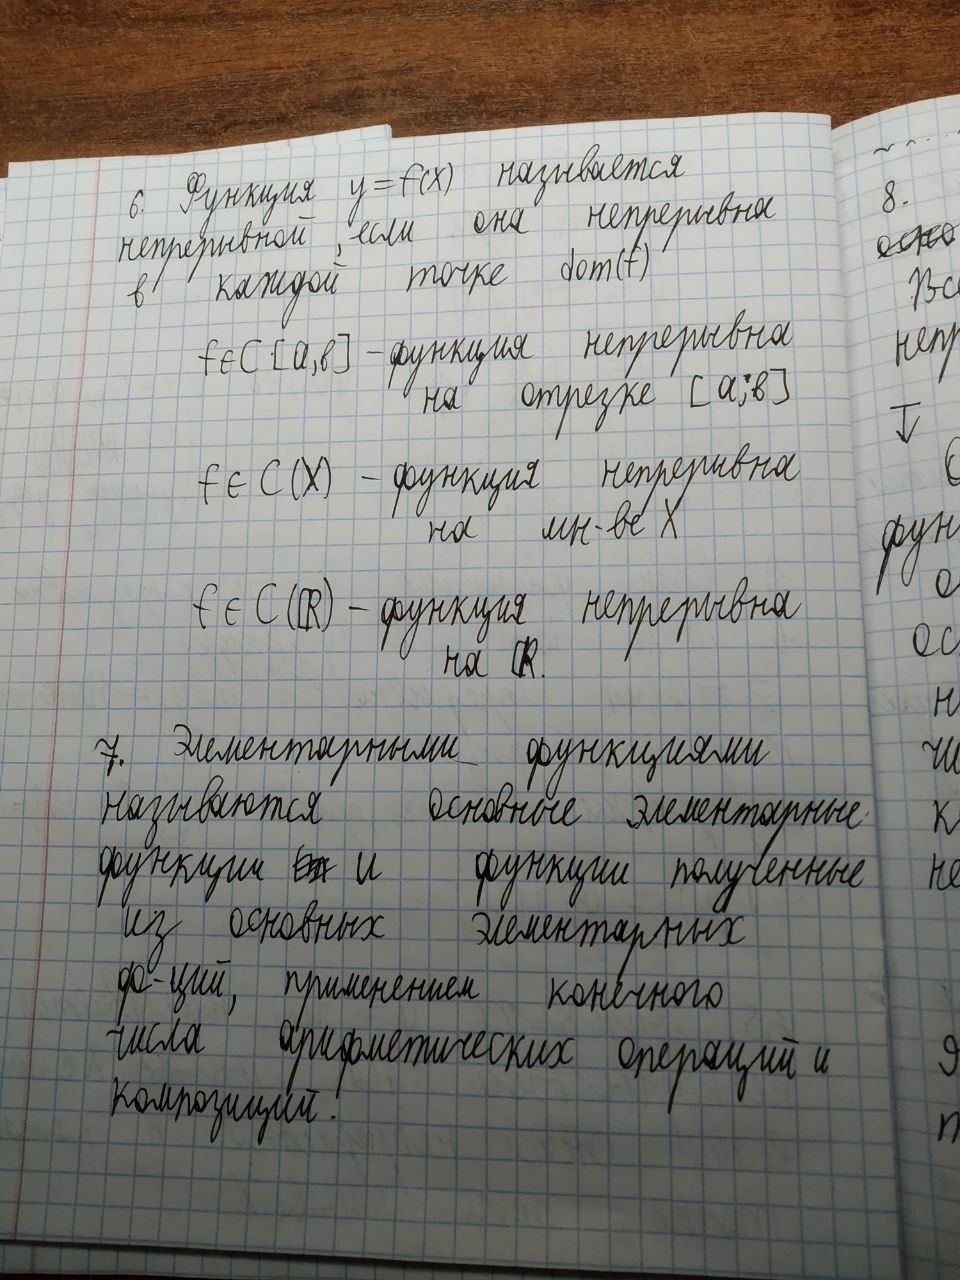 6. Функция y=f(x) называется
непрерывной, если она непрерывна
в каждой точке dom(f)
f∈C[a,в] – функция непрерывна
на отрезке [a;в]
f∈C(X) – функция непрерывна
на мн-ве X
f∈C(ℝ) – функция непрерывна
на ℝ.
7. Элементарными функциями
называются основные элементарные
функции и функции полученные
из основных элементарных
фо-ций, применением конечного
числа арифметических операций и
композиций.
8.
Все
непр
функ
ос